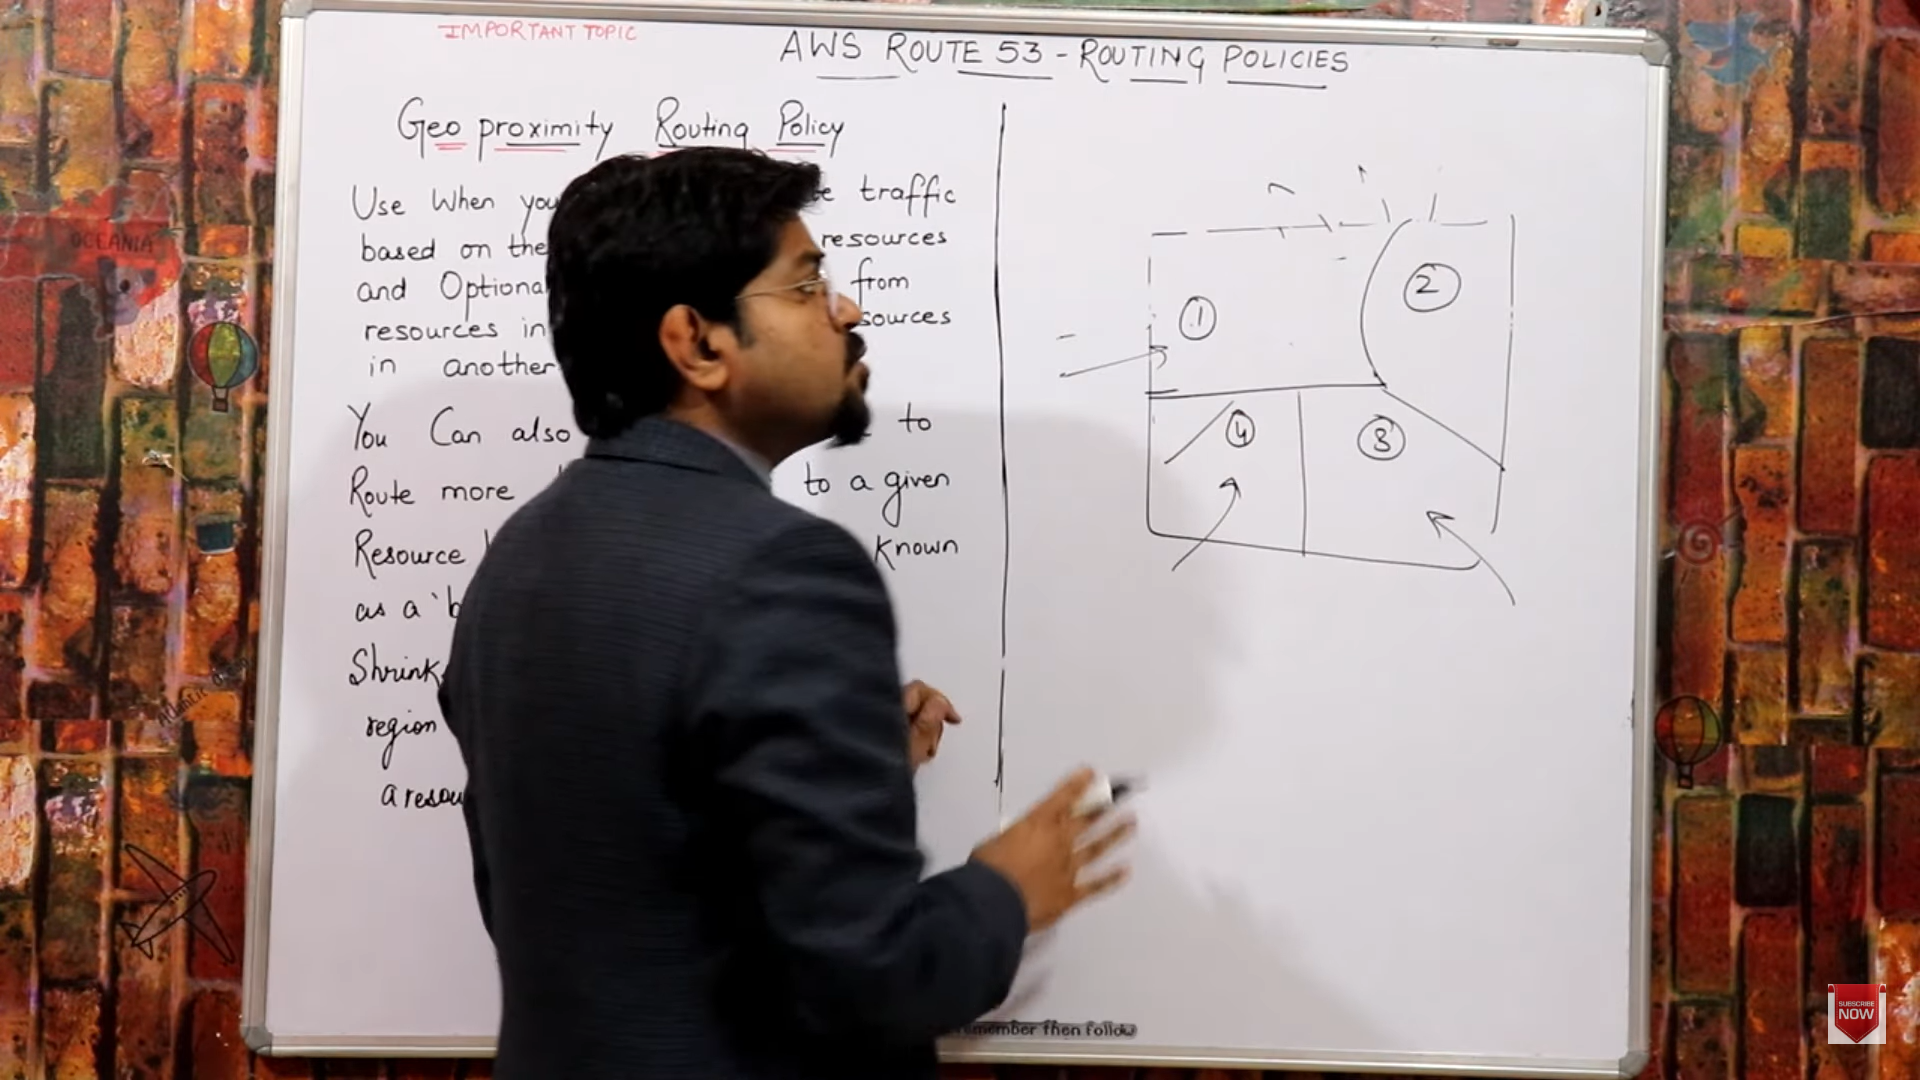 IMPORTANT TOPIC
AWS ROUTE 53 - ROUTING POLICIES
Geo proximity Routing Policy
Use When you traffic
based on the resources
and Optional from
resources in
in another
You Can also to
Route more to a given
Resource known
as a
Shrink
region
a
1
2
4
3
OCEANIA
then follow
SUBSCRIBE
NOW